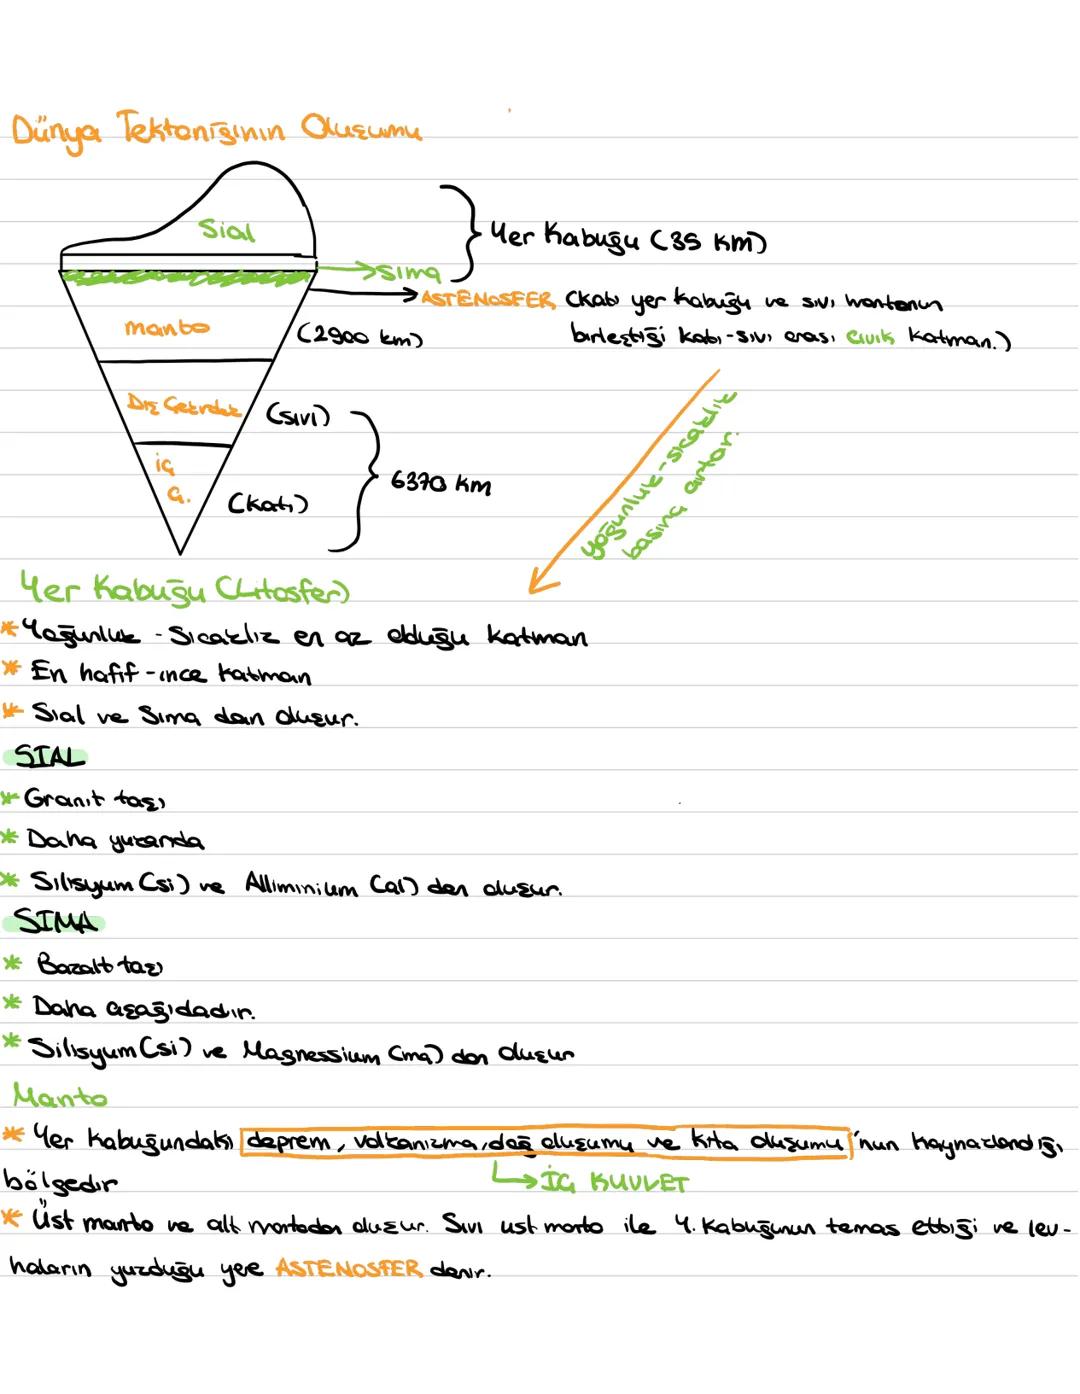 Dünya Tektoniğinin Oluşumu
Sial
Yer Kabuğu (35 km)
Sima
ASTENOSFER (Katı yer kabuğu ve sıvı mantonun
birleştiği katı-sıvı arası cıvık katman.)
manto
(2900 km)
Dış Çekirdek
(sıvı)
iç
ç.
(katı)
6370 km
yoğunluk-sıcaklık
basınç artar.
Yer Kabuğu (Litosfer)
* Yoğunluk - Sıcaklık en az olduğu katman
* En hafif - ince katman
* Sial ve Sima dan oluşur.
SIAL
* Granit taşı
* Daha yukarıda
* Silisyum (si) ve Alliminium (al) den oluşur.
SIMA
* Bazalt taşı
* Daha aşağıdadır.
* Silisyum (si) ve Magnessium (ma) dan oluşur
Manto
* Yer Kabuğundaki deprem, volkanizma, dağ oluşumu ve kıta oluşumu'nun kaynaklandığı
bölgedir
İÇ KUVVET
* Üst manto ve alt mantodan oluşur. Sıvı üst manto ile Y. Kabuğunun temas ettiği ve lev-
haların yüzdüğü yere ASTENOSFER denir.